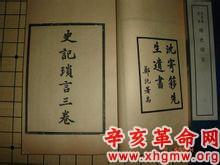 沈寄簃先
生遺書
史記瑣言三卷
辛亥革命网
www.xhgmw.org